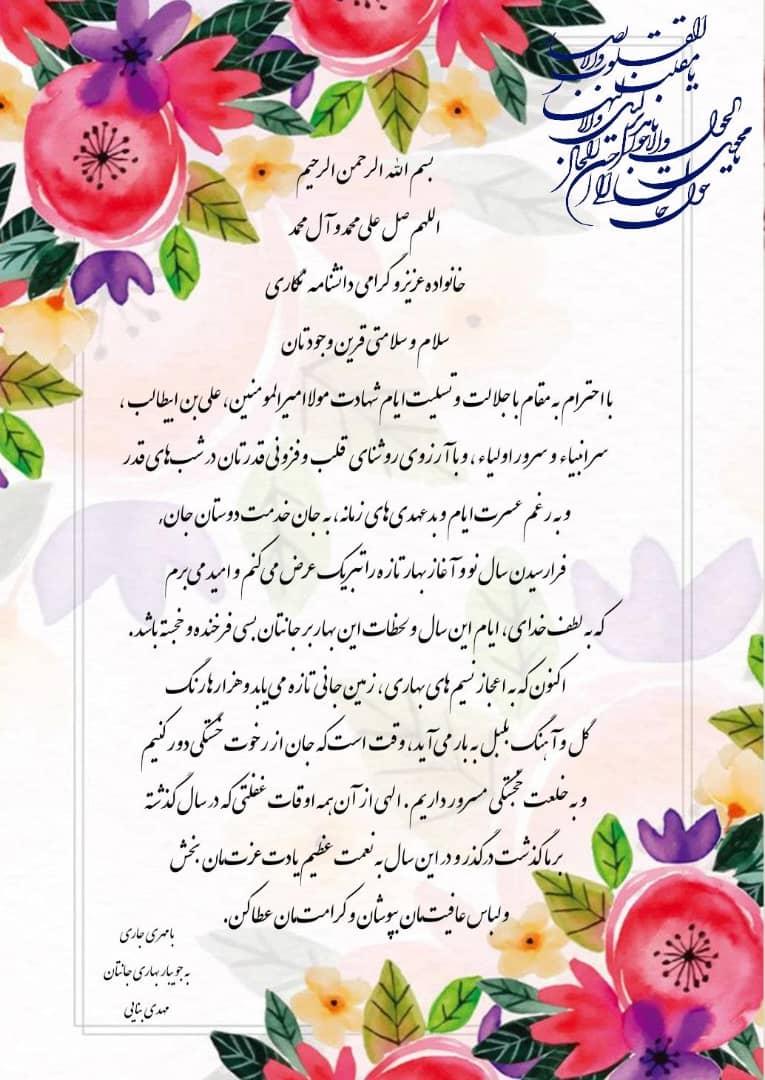 یا مقلب القلوب والابصار
یا مدبر اللیل والنهار
یا محول الحول والاحوال
حول حالنا الی احسن الحال
بسم الله الرحمن الرحیم
اللهم صل علی محمد و آل محمد
خانواده عزیز و گرامی دانشنامه نگاری
سلام و سلامتی قرین وجودتان
با احترام به مقام با جلالت و تسلیت ایام شهادت مولا امیرالمومنین، علی بن ابیطالب ،
سر انبیاء و سرور اولیاء ، و با آرزوی روشنای قلب و فزونی قدرتان در شب‌های قدر
و به رغم عسرت ایام و بدعهدی‌های زمانه، به جان خدمت دوستان جان,
فرارسیدن سال نو و آغاز بهار تازه را تبریک عرض می‌کنم و امید می‌برم
که به لطف خدای، ایام این سال و لحظات این بهار بر جانتان بسی فرخنده و خجسته باشد.
اکنون که به اعجاز نسیم های بهاری، زمین جانی تازه می‌یابد و هزار ها رنگ
گل و آهنگ بلبل به بار می‌آید، وقت است که جان از رخوت خستگی دور کنیم
و به خلعت خجستگی مسرور داریم . الهی از آن همه اوقات غفلتی که در سال گذشته
بر ما گذشت درگذر و در این سال به نعمت عظیم یادت عزت‌مان بخش
و لباس عافیت‌مان بپوشان و کرامت‌مان عطا کن.
با مهری جاری
به جویبار بهاری جانتان
مهدی بنایی